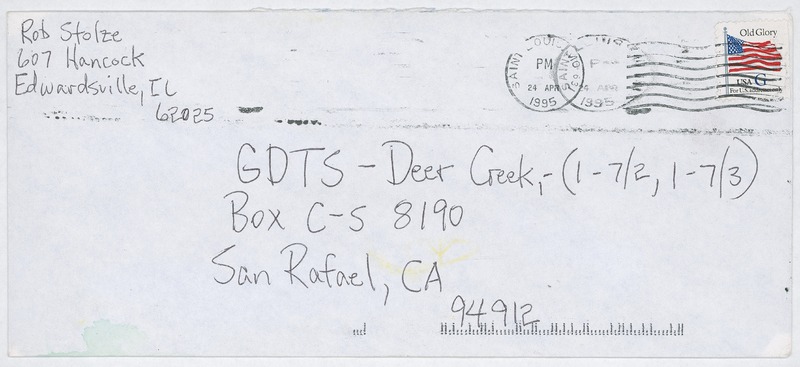 Rob Stolze
607 Hancock
Edwardsville, IL
62025
SAINT LOUIS
PM
24 APR
1995
SAINT LOUIS
P
24 APR
1995
Old Glory
USA G
For U.S. addresses only
GDTS - Deer Creek,- (1-7/2, 1-7/3)
Box C-S 8190
San Rafael, CA
94912